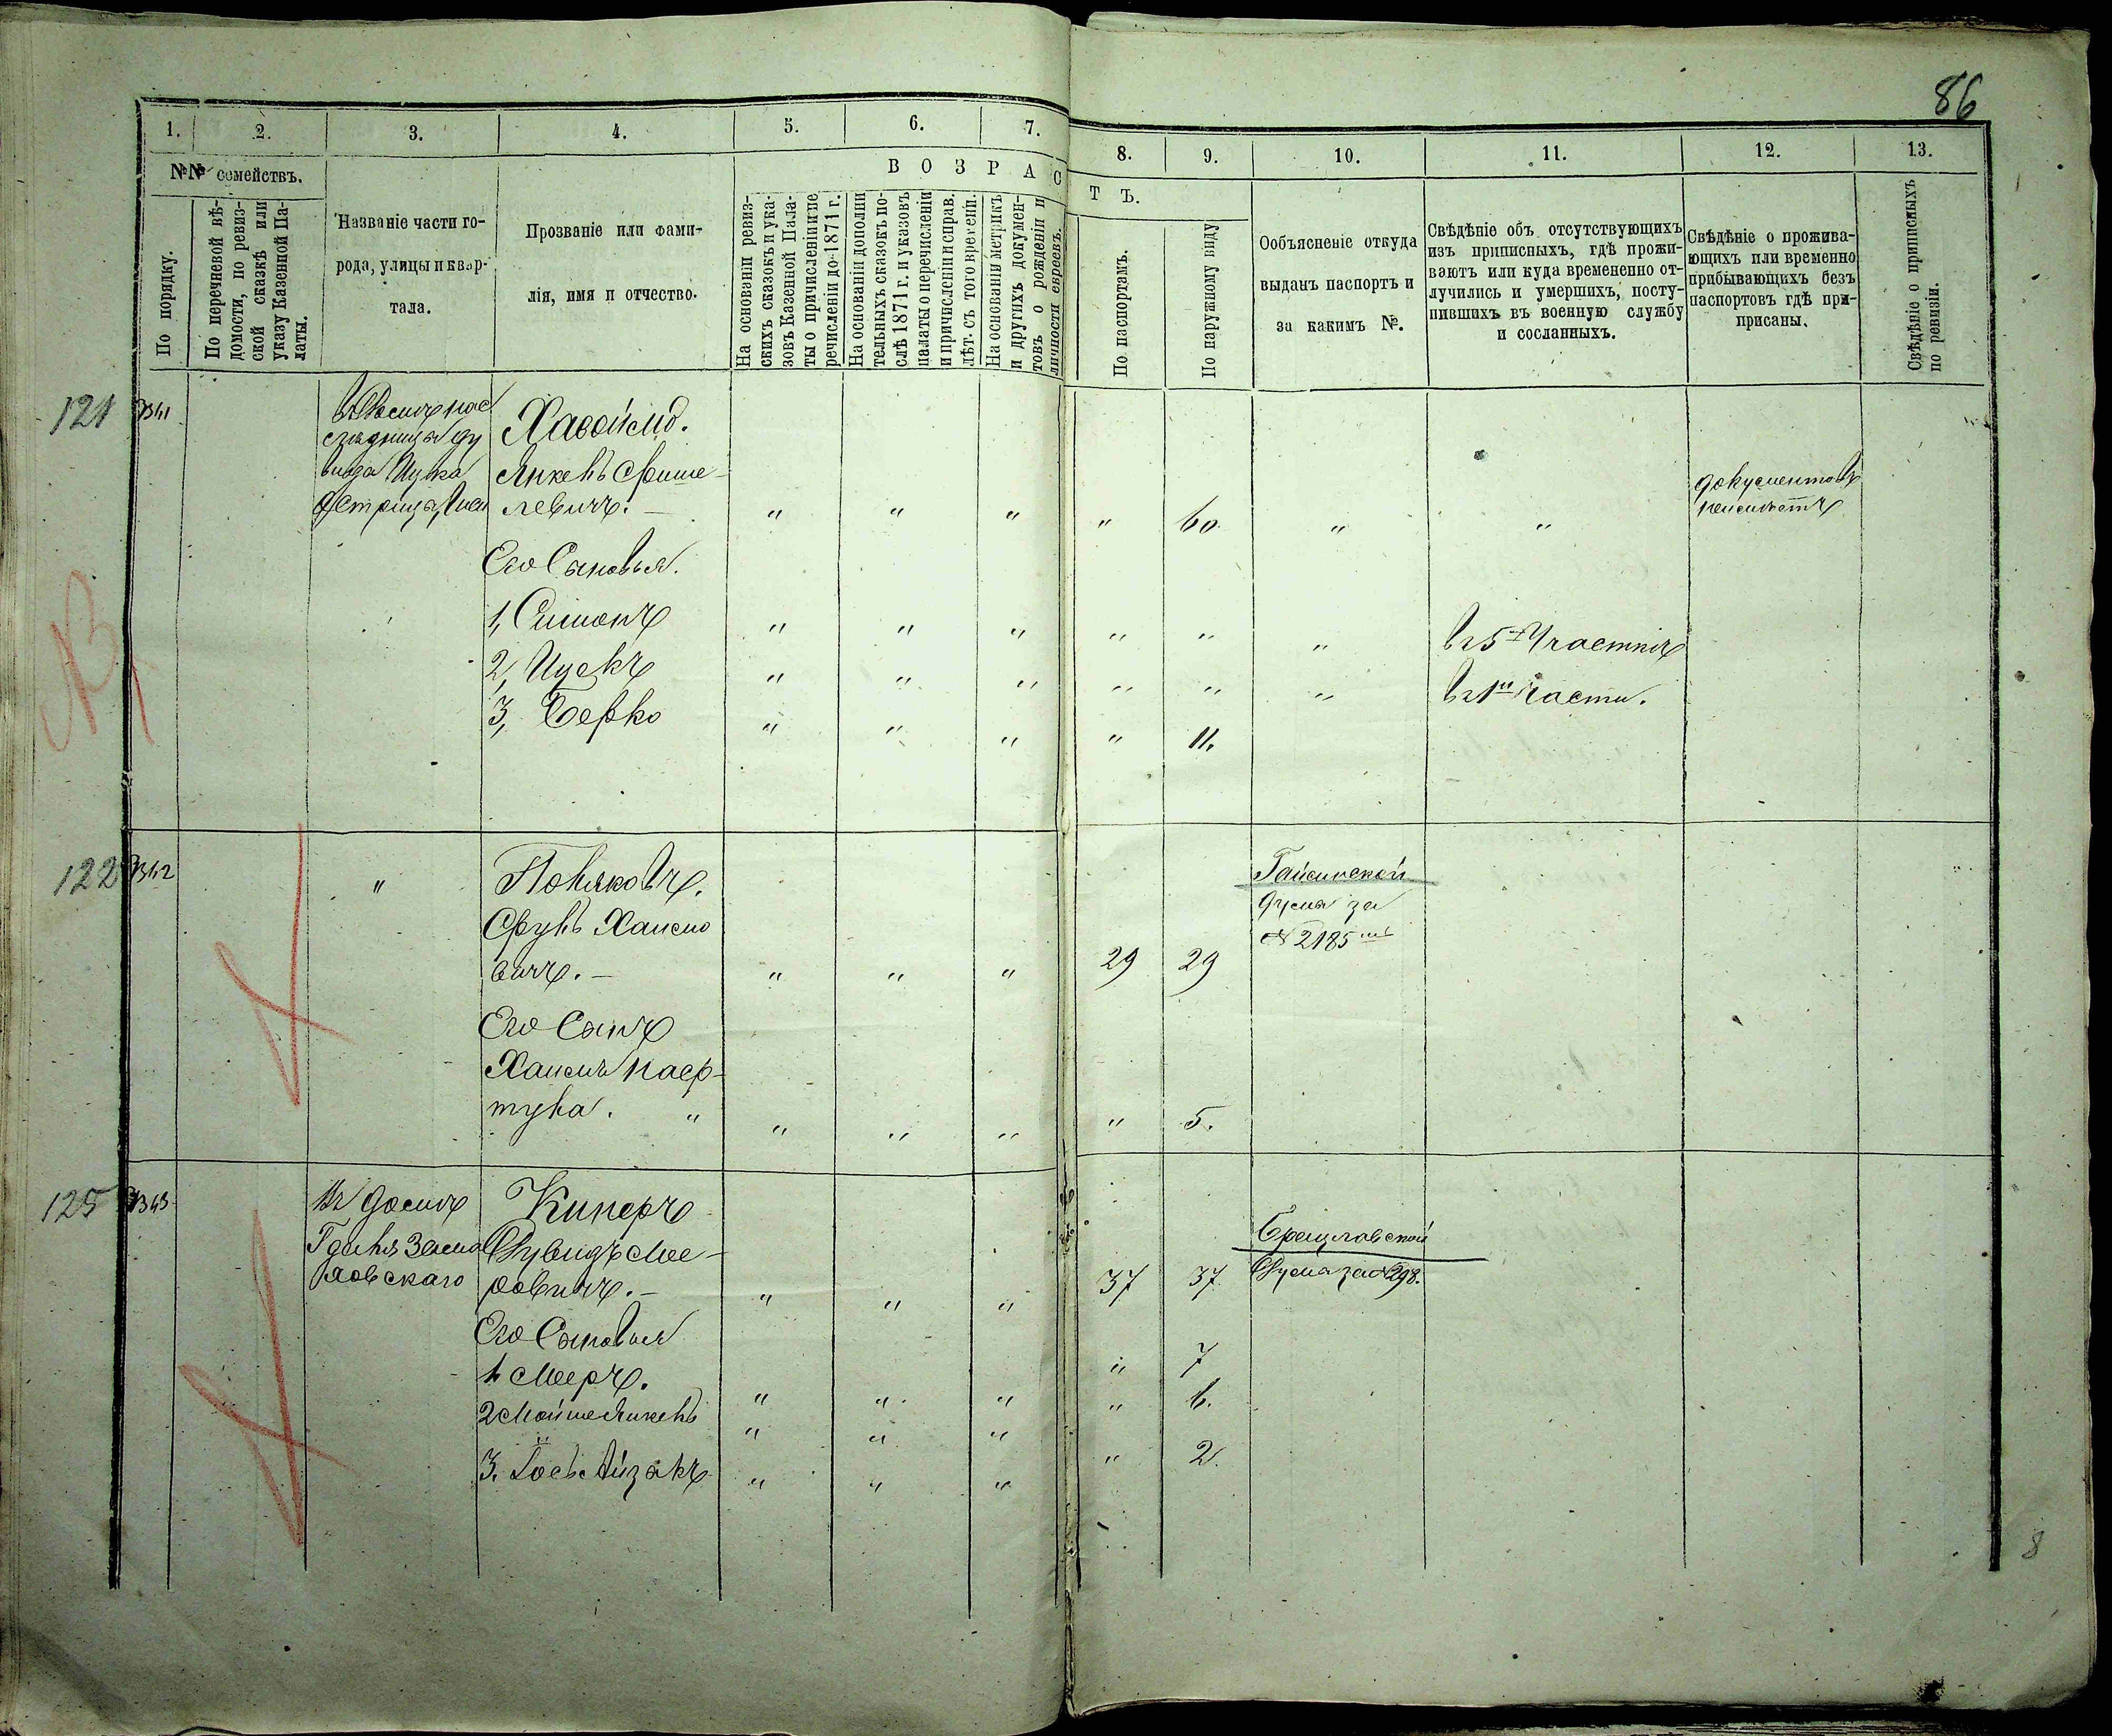 86
1. 2. 3. 4. 5. 6. 7. 8. 9. 10. 11. 12. 13.
№№ семействъ.
ВОЗРАСТЪ.
По порядку.
По перечневой вѣ-
домости, по ревиз-
ской сказкѣ или
указу Казенной Па-
латы.
Названіе части го-
рода, улицы и квар-
тала.
Прозваніе или фами-
лія, имя и отчество.
На основаніи ревиз-
скихъ сказокъ и ука-
зовъ Казенной Пала-
ты о причисленіи и пе
речисленіи до 1871 г.
На основаніи дополни
тельныхъ сказокъ по-
слѣ 1871 г. и указовъ
палаты о перечисленіи
и причисленіи и справ.
лѣт. съ того времени.
На основаніи метрикъ
и другихъ докумен-
товъ о рожденіи и
личности евреевъ.
По паспортамъ.
По наружному виду
Ообъясненіе откуда
выданъ паспортъ и
за какимъ №.
Свѣдѣніе объ отсутствующихъ
изъ приписныхъ, гдѣ прожи-
ваютъ или куда времененно от-
лучились и умершихъ, посту-
пившихъ въ военную службу
и сосланныхъ.
Свѣдѣніе о прожива-
ющихъ или временно
прибывающихъ безъ
паспортовъ гдѣ при-
писаны.
Свѣдѣніе о приписныхъ
по ревизіи.
121
Хавоймд.
Янкель Фише-
левичъ. — " " " " 60 " "
документовъ
неимѣетъ
Его Сыновья.
1, Симонъ " " " " " " въ 5 Участкѣ
2, Ицекъ " " " " " " въ 1й Части.
3, Берко " " " " 11.
122
"
Поляковъ.
Срулъ Хаимо
вичъ. — " " " 29 29
Гайсинской
Думы за
№ 2185
Его Сынъ
Хаимъ Наф-
тула. " " " " " 5.
125
въ домѣ
Киперъ
Дувидъ Мее-
ровичъ. — " " " 37 37
Брацлавской
Думы за №298.
Его Сыновья
1 Мееръ. " " " " 7
2 Мойше Янкель " " " " 6.
3. Іось Айзакъ " " " " 2.
8